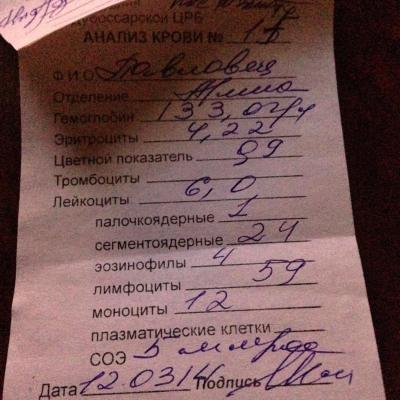 Дубоссарской ЦРБ
АНАЛИЗ КРОВИ №
Ф И О Павловец
Отделение
Гемоглобин 133,0 г/л
Эритроциты 4,22
Цветной показатель 09
Тромбоциты
Лейкоциты 6,0
палочкоядерные 1
сегментоядерные 24
эозинофилы 4
лимфоциты 59
моноциты 12
плазматические клетки
СОЭ 5 мм/час
Дата 12.03.14 Подпись